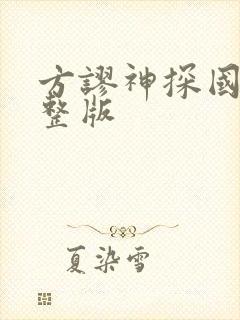 方謬神探国
整版
夏染雪